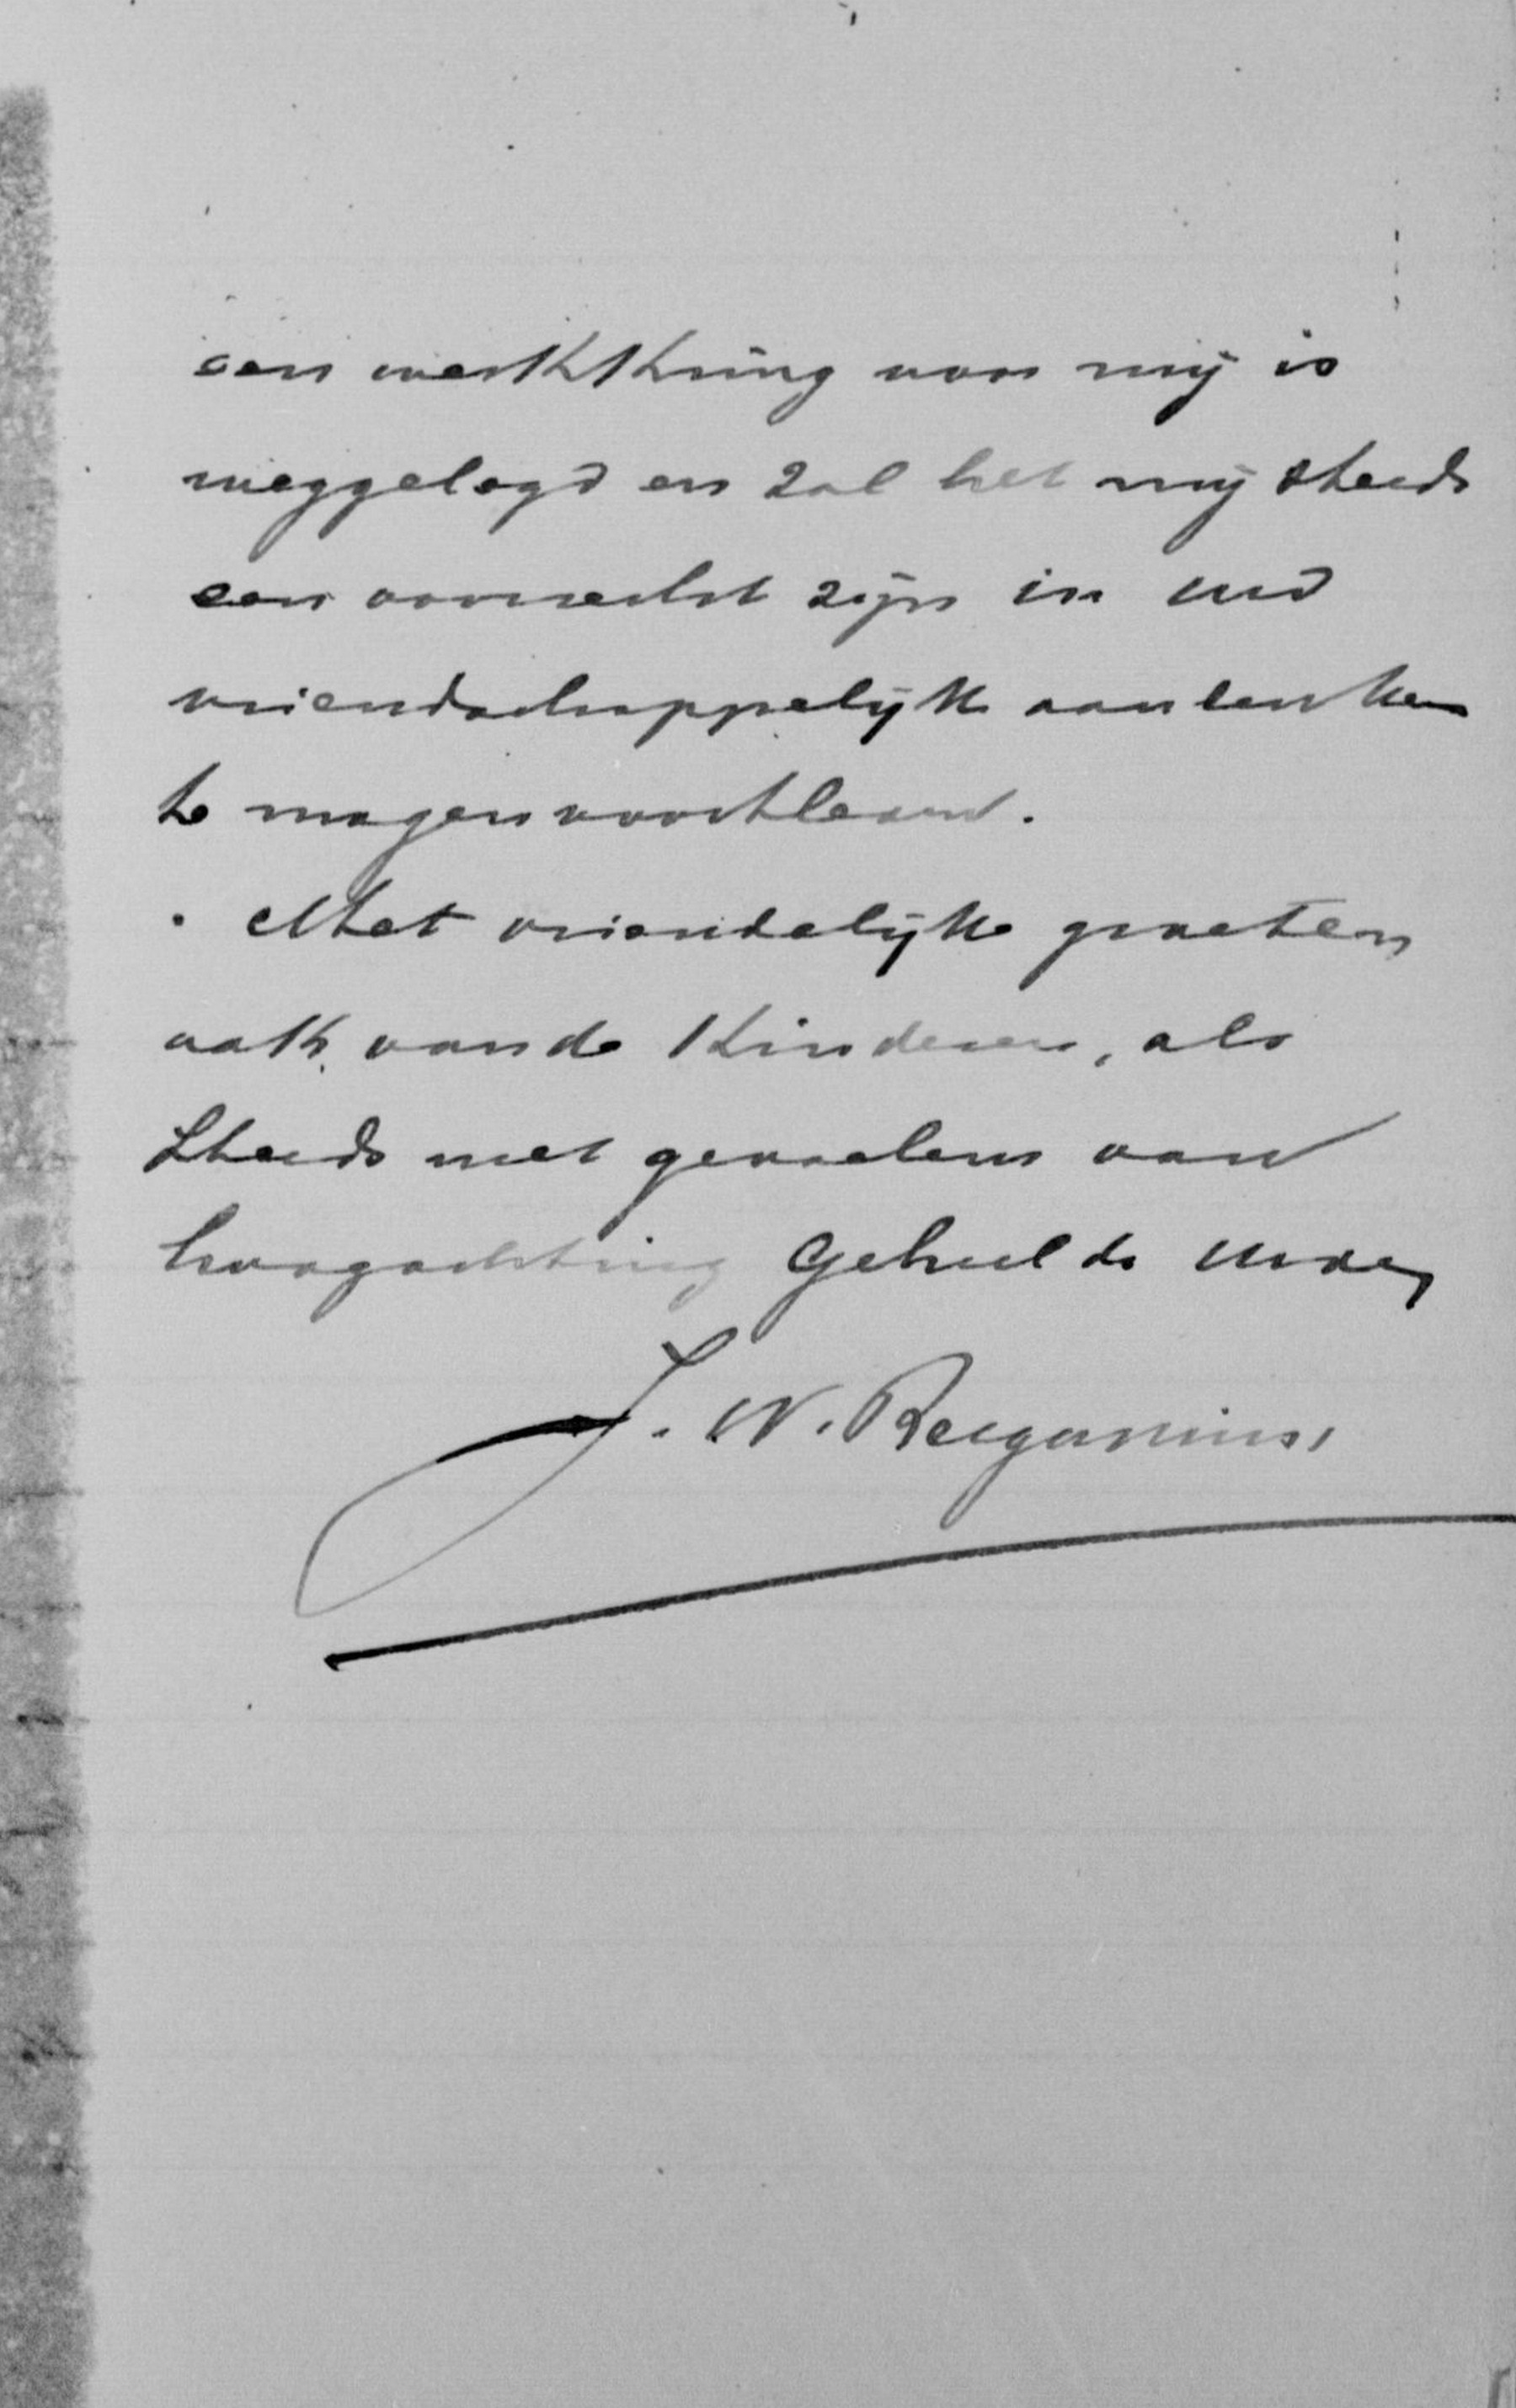 een werkkring voor mij is
weggelegd en zal het mij steeds
een voorrecht zijn in Uwd
vriendschappelijk aandenken
te mogen voortleven.
Met vriendelijke groeten
ook van de Kinderen, als
steeds met gevoelens van
hoogachting geheel de Uwe,
J. W.